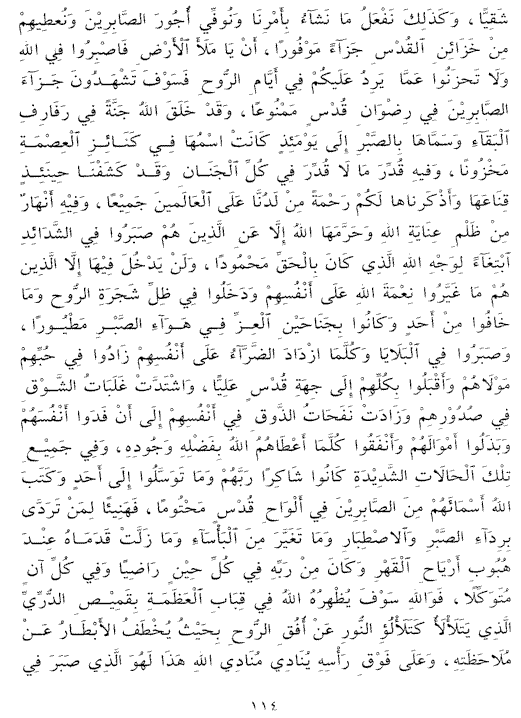 شَقِيًّا، وَكَذَلِكَ نَفْعَلُ مَا نَشَآءُ بِأَمْرِنَا وَنُوَفِّي أُجُورَ الصَّابِرِينَ وَنُعطِيهِمْ
مِنْ خَزَائِنِ ٱلقُدْسِ جَزَآءً مَوْفُورًا، أَنْ يَا مَلَأَ ٱلْأَرْضِ فَاصْبِرُوا فِي اللهِ
وَلَا تَحزَنُوا عَمَّا يَرِدُ عَلَيكُمْ فِي أَيَّامِ الرُّوحِ فَسَوْفَ تَشْهَدُونَ جَزَآءَ
الصَّابِرِينَ فِي رِضْوَانِ قُدْسٍ مَمْنُوعًا، وَقَدْ خَلَقَ اللهُ جَنَّةً فِي رَفَارِفِ
ٱلْبَقَآءِ وَسَمَّاهَا بِالصَّبْرِ إِلَى يَوْمَئِذٍ كَانَتْ اسْمُهَا فِي كَنَائِزِ ٱلْعِصْمَةِ
مَخْزُونًا، وَفِيهِ قُدِّرَ مَا لَا قُدِّرَ فِي كُلِّ ٱلْجَنَانِ وَقَدْ كَشَفْنَا حِينَئِذٍ
قِنَاعَهَا وَأَذْكَرناها لَكُمْ رَحْمَةً مِنْ لَدُنَّا عَلَى ٱلْعَالَمينَ جَمِيعًا، وَفِيْهِ أَنْهَارٌ
مِنْ ظَلْمِ عِنَايَةِ اللهِ وَحَرَّمَهَا اللهُ إِلَّا عَنِ الَّذِينَ هُمْ صَبَرُوا فِي الشَّدَائِدِ
ٱبْتِغَآءً لِوَجْهِ اللهِ الَّذِي كَانَ بِالْحَقِّ مَحْمُودًا، وَلَنْ يَدْخُلَ فِيْهَا إِلَّا الَّذين
هُمْ مَا غَيَّرُوا نِعْمَةَ اللهِ عَلَى أَنْفُسِهِمْ وَدَخَلُوا فِي ظِلِّ شَجَرَةِ الرُّوحِ وَمَا
خَافُوا مِنْ أَحَدٍ وَكَانُوا بِجَنَاحَيْنِ ٱلْعِزِّ فِي هَوَآءِ الصَّبْرِ مَطْيُورًا،
وَصَبَرُوا فِي ٱلْبَلَايَا وَكُلَّمَا ازْدَادَ الضَّرَّآءُ عَلَى أَنْفُسِهِمْ زَادُوا فِي حُبِّهِمْ
مَوْلَاهُمْ وَأَقْبَلُوا بِكُلِّهِمْ إِلَى جِهَةِ قُدْسٍ عَلِيًّا، وَاشْتَدَّتْ غَلَبَاتُ الشَّوْقِ
فِي صُدُوْرِهِمْ وَزَادَتْ نَفَحَاتُ الذَّوقِ فِي أَنْفُسِهِمْ إِلَى أَنْ فَدَوا أَنْفُسَهُمْ
وَبَذَلُوا أَمْوَالَهُمْ وَأَنْفَقُوا كُلَّمَا أَعْطَاهُمُ اللهُ بِفَضْلِهِ وَجُودِهِ، وَفِي جَمِيْعِ
تِلْكَ ٱلْحَالَاتِ الشَّدِيْدَةِ كَانُوا شَاكِرًا رَبَّهُمْ وَمَا تَوَسَّلُوا إِلَى أَحَدٍ وَكَتَبَ
اللهُ أَسْمَائَهُمْ مِنَ الصَّابِرِيْنَ فِي أَلْوَاحِ قُدْسٍ مَحْتُومًا، فَهَنِيئًا لِمَنْ تَرَدَّى
بِرِدَآءِ الصَّبْرِ وَالاصْطِبَارِ وَمَا تَغَيَّرَ مِنَ ٱلْبَأْسَآءِ وَمَا زَلَّتْ قَدَمَاهُ عِنْدَ
هُبُوبِ أَرْيَاحِ ٱلْقَهْرِ وَكَانَ مِنْ رَبِّهِ فِي كُلِّ حِيْنٍ رَاضِيًا وَفِي كُلِّ آنٍ
مُتَوَكِّلًا، فَوَاللهِ سَوْفَ يُظْهِرُهُ اللهُ فِي قِبَابِ ٱلْعَظَمَةِ بِقَمِيْصِ الدُّرِّيِّ
الَّذِي يَتَلَأْلَأُ كَتَلَأْلُؤِ النُّورِ عَنْ أُفُقِ الرُّوحِ بِحَيْثُ يُخْطَفُ الأَبْطَارُ عَنْ
مُلَاحَظَتِهِ، وَعَلَى فَوْقِ رَأْسِهِ يُنَادِي مُنَادِي اللهِ هَذَا لَهُوَ الَّذِي صَبَرَ فِي
١١٤